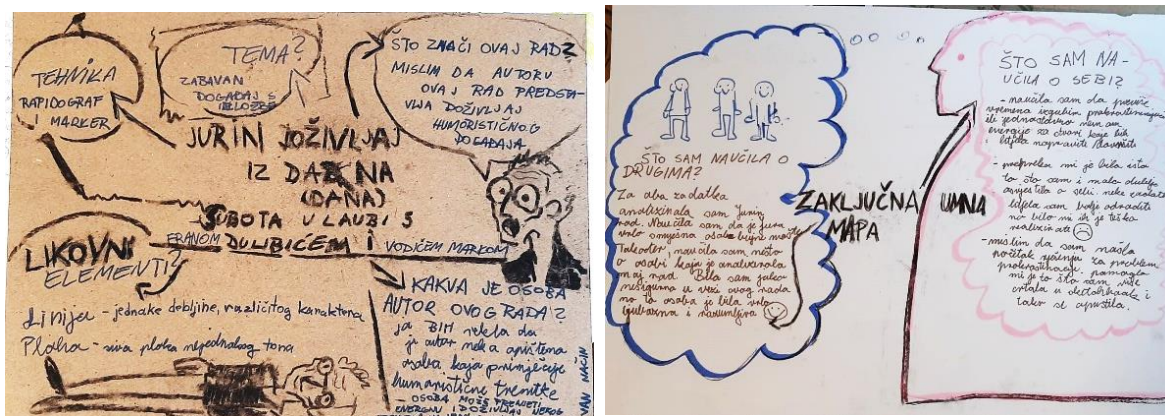 TEHNIKA
RAPIDOGRAF
I MARKER
TEMA?
ZABAVAN
DOGAĐAJ S
IZLOŽBE
ŠTO ZNAČI OVAJ RAD?
MISLIM DA AUTORU
OVAJ RAD PREDSTA-
VLJA DOŽIVLJAJ
HUMORISTIČNOG
DOGAĐAJA
JURIN DOŽIVLJAJ
IZ
(DANA)
SUBOTA U LAUBI S
FRANOM DULIBIĆEM I VODIČEM MARKOM
LIKOVNI
ELEMENTI?
Linija - jednake debljine, različitog karaktera
Ploha - siva ploha nejednakog tona
KAKVA JE OSOBA
AUTOR OVOG RADA?
ja BIH rekla da
je autor neka opuštena
osoba koja primjećuje
humoristične trenutke
- OSOBA MOŽE PRENETI
ENERGIJU I DOŽIVLJAJ NEKOG
NAČIN
ŠTO SAM NAUČILA O
DRUGIMA?
Za oba zadatka
analizirala sam Jurin
rad. Naučila sam da je Jura
vrlo smješna osoba bujne mašte
Također, naučila sam nešto
o osobi koja je analizirala
moj rad. Bila sam jako
nesigurna u vezi ovog rada
no ta osoba je bila vrlo
ljubazna i razumljiva
ZAKLJUČNA UMNA
MAPA
ŠTO SAM NA-
UČILA O SEBI?
- naučila sam da previše
vremena izgubim
ili jednostavno nemam
energije za stvari koje bih
htjela napraviti
- prepreka mi je bila isto
to što sam i malo dublje
osvijestila o sebi. neke zadatke
htjela sam bolje odraditi
no bilo mi ih je teško
realizirati
- mislim da sam našla
početak rješenja za problem
prokrastinacije. pomogla
mi je to što sam više
crtala u sketchbook i
tako se opustila.